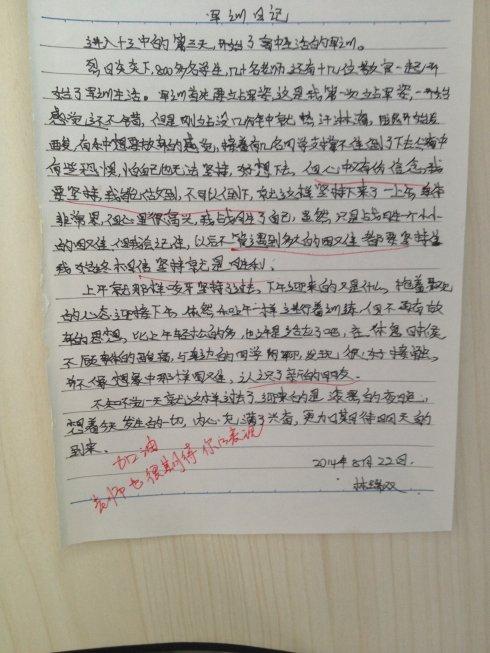 军训日记
进入十三中的第三天,开始了高中生活的军训。
烈日炎炎下,800多名学生,几十名老师还有十几位教官一起开
始了军训生活。军训首先要立军姿,这是我第一次立军姿,一开始
感觉还不错,但是刚立没几分钟就大汗淋漓,
心中想要放弃的感觉,接着有几名同学支撑不住倒了下去,心中
有些恐惧,怕自己也无法坚持,但心中又有的信念,我
要坚持,我能做到,不可以倒下,就这样坚持下来了一上午,
非常累,但心里很高兴,我战胜了自己,虽然,只是占胜一个小小
的困难,但我会记住,以后不管遇到多大的困难都要坚持住
我始终相信坚持就是胜利。
上午就那样咬牙坚持了过去,下午迎来的又是什么,抱着
的心态迎接下午,依然和上午一样进行着训练,但不再有放
弃的思想,比上午轻松的多,也许是适应了吧,在休息时候
不顾身体的疲惫,与身边的同学们聊,发现,很好接触,
并不像想象中那样困难,认识了新的朋友。
不知不觉一天就这样过去了,迎来的是漆黑的夜晚,
想着今天发生的一切,内心充满了兴奋,更为期待明天的
到来。
加油
老师也很期待你的表现
2014年8月22日.
林